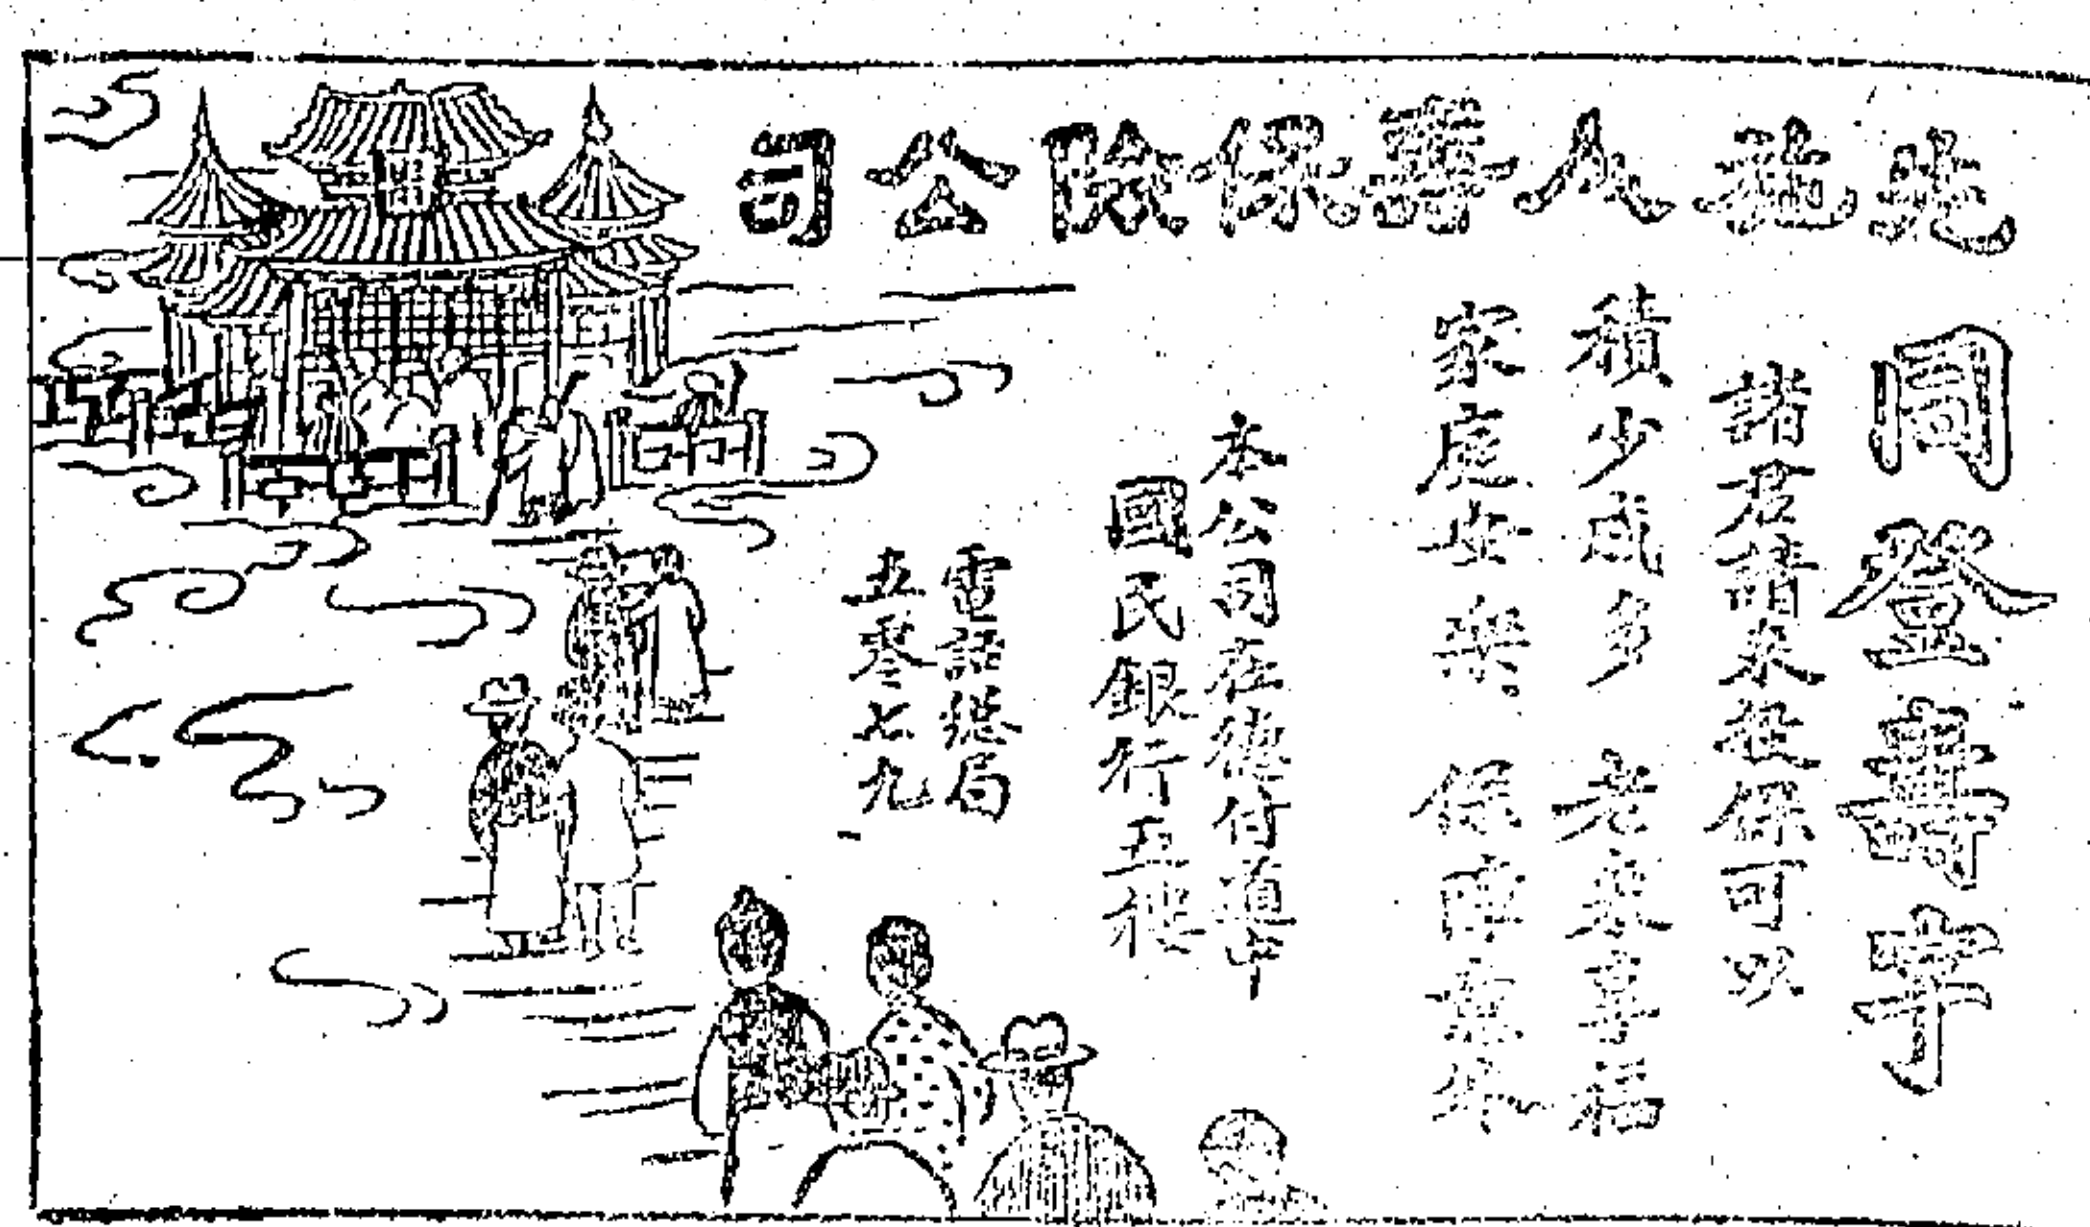 先施人壽保險公司
同登壽宇
諸君請來投保可以
積少成多 老來享福
家庭安樂 保障
本公司在德付道中
國民銀行五樓
電話總局
五零七九